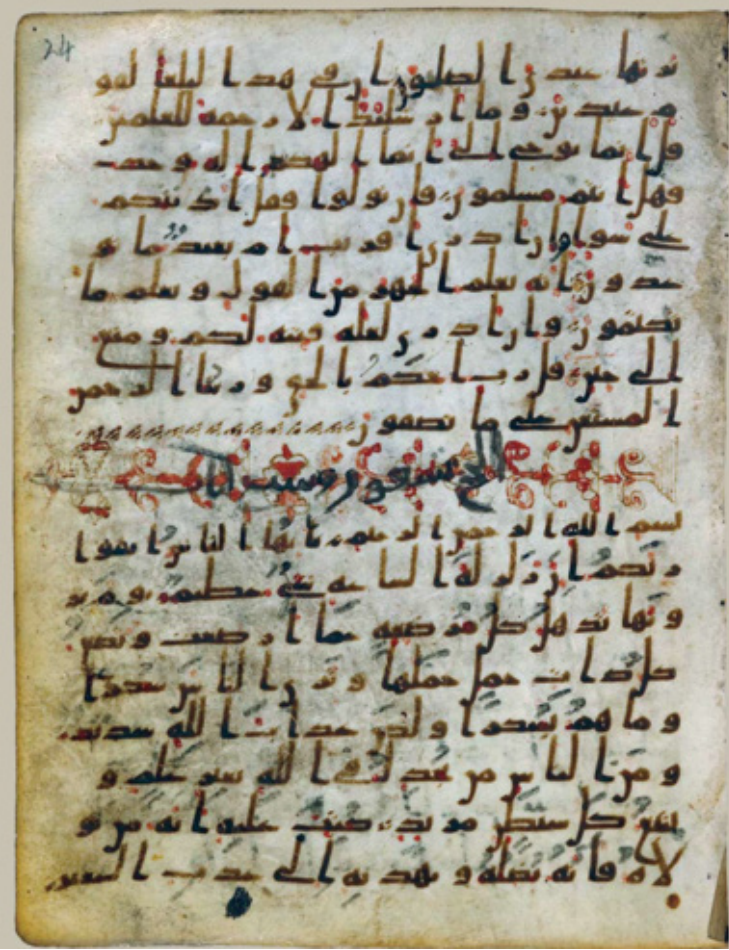 24
يرثها عبدي الصلحون ان في هذا لبلغا لقو
م عبدين وما ارسلنك الا رحمة للعلمين
قل انما يوحى الي انما الهكم اله وحد
فهل انتم مسلمون فان تولوا فقل اذنتكم
على سوا وان ادري اقريب ام بعيد ما تو
عدون انه يعلم الجهر من القول ويعلم ما
تكتمون وان ادري لعله فتنة لكم ومتع
الى حين قل رب احكم بالحق وربنا الرحمن
المستعن على ما تصفون
الحج سبعون وست
بسم الله الرحمن الرحيم يايها الناس اتقوا
ربكم ان زلزلة الساعة شي عظيم يوم تر
ونها تذهل كل مرضعة عما ارضعت وتضع
كل ذات حمل حملها وترى الناس سكرى
وما هم بسكرى ولكن عذاب الله شديد
ومن الناس من يجدل في الله بغير علم و
يتبع كل شيطن مريد كتب عليه انه من تو
لاه فانه يضله ويهديه الى عذاب السعير